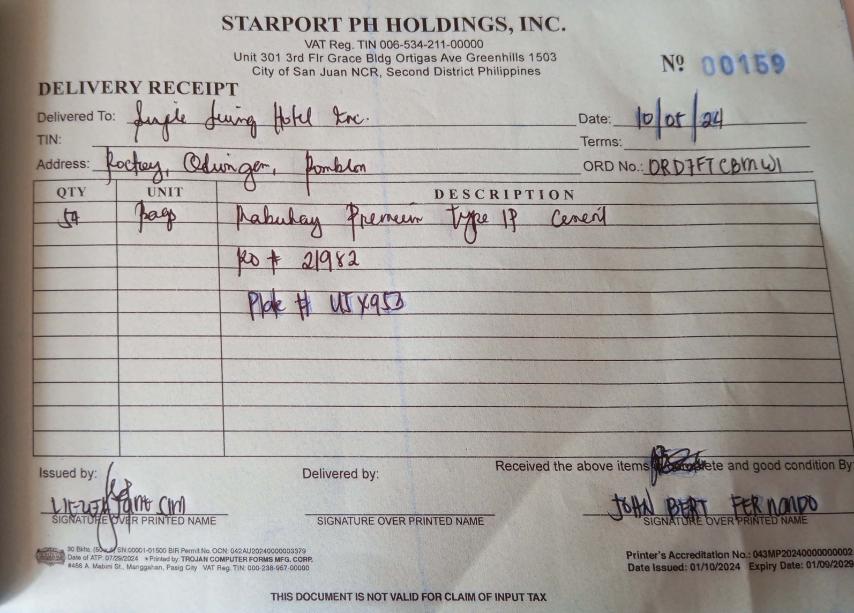 STARPORT PH HOLDINGS, INC.
VAT Reg. TIN 006-534-211-00000
Unit 301 3rd Flr Grace Bldg Ortigas Ave Greenhills 1503
City of San Juan NCR, Second District Philippines
Nº 00159
DELIVERY RECEIPT
Delivered To: Living Hotel Inc.
Date: 10/05/24
TIN:
Terms:
Address: Romblon
ORD No.: ORD7FTCBMW1
QTY UNIT DESCRIPTION
bags Mabuhay Premium Type 1P Cement
# 21982
Plate # UIX953
Issued by:
Delivered by:
Received the above items ete and good condition By
SIGNATURE OVER PRINTED NAME
SIGNATURE OVER PRINTED NAME
JOHN BERT FERNANDO
SIGNATURE OVER PRINTED NAME
30 Bklts. SN:00001-01500 BIR Permit No. OCN: 042AU20240000003379
Date of ATP: 07/29/2024 Printed by: TROJAN COMPUTER FORMS MFG. CORP.
#456 A. Mabini St., Manggahan, Pasig City VAT Reg. TIN: 000-238-967-00000
Printer's Accreditation No.: 043MP20240000000002
Date Issued: 01/10/2024 Expiry Date: 01/09/2029
THIS DOCUMENT IS NOT VALID FOR CLAIM OF INPUT TAX